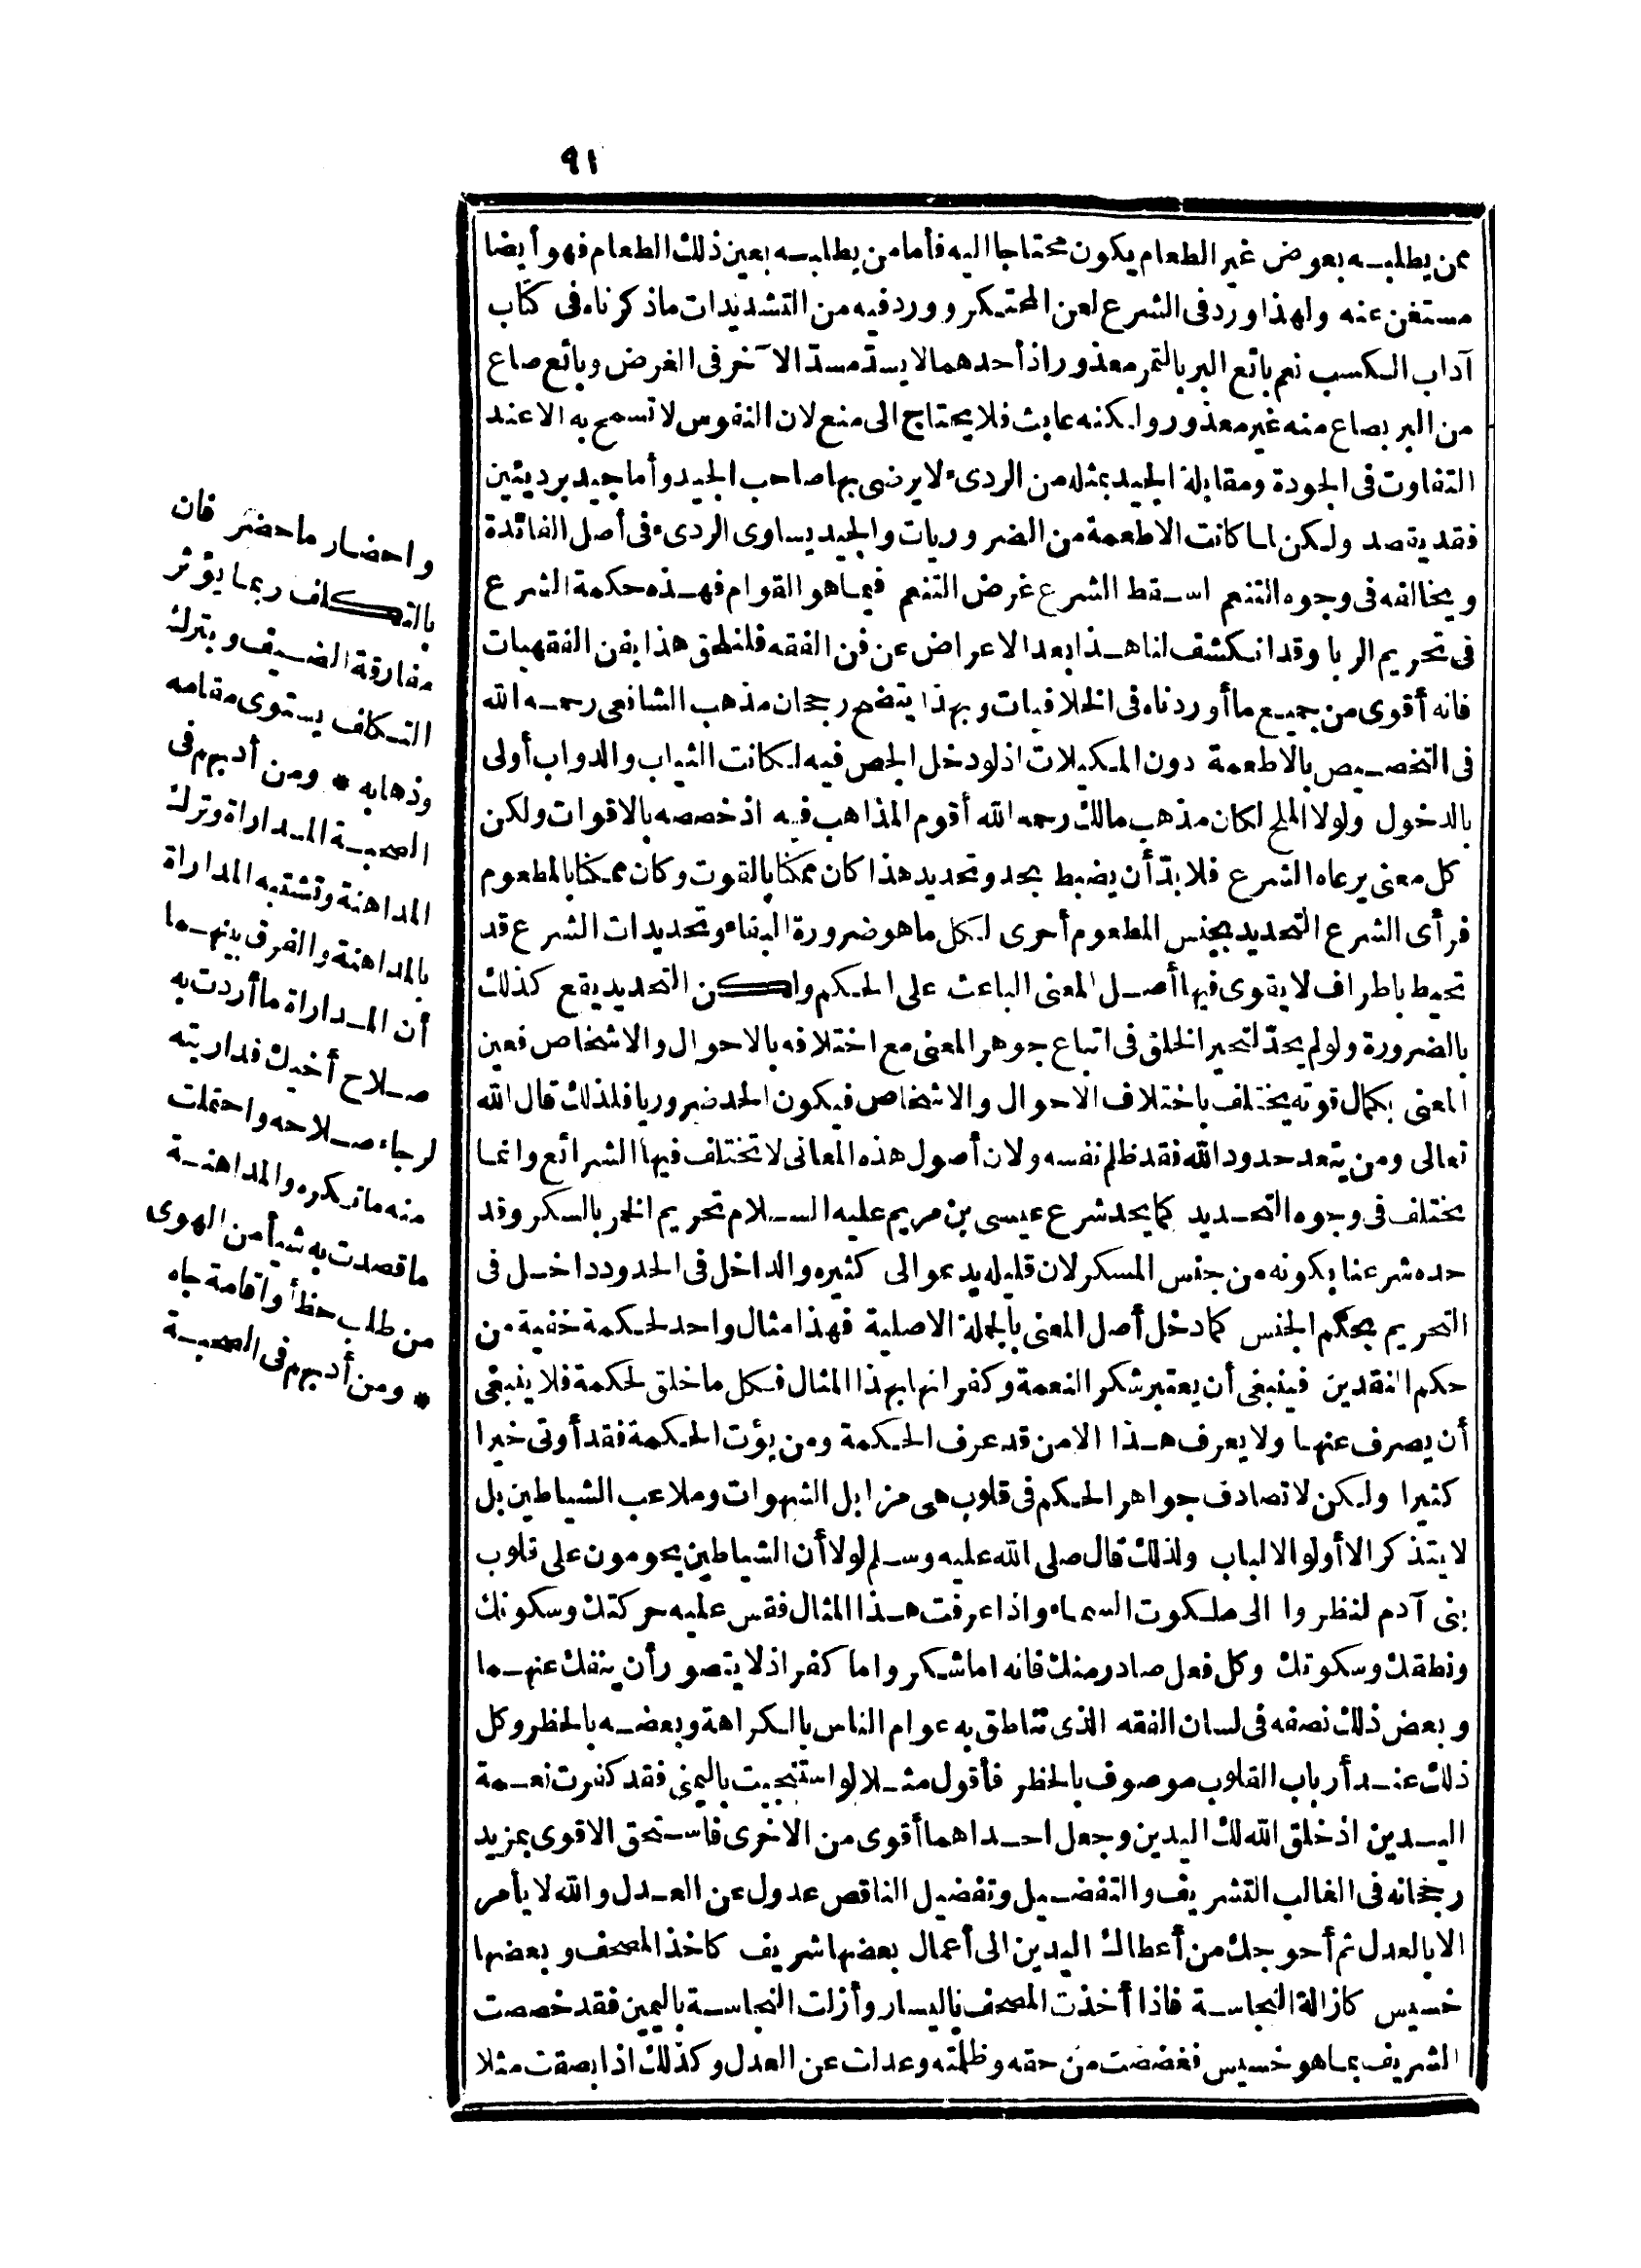 ٩١
ممن يطلبه بعوض غير الطعام يكون محتاجا اليه فأما من يطلبه بعين ذلك الطعام فهو أيضا
مستغن عنه ولهذا ورد فى الشرع لعن المحتكر وورد فيه من التشديدات ماذكرناه فى كتاب
آداب الكسب نعم بائع البر بالتمر معذور اذ أحدهما لا يسدّ مسدّ الآخر فى الغرض وبائع صاع
من البر بصاع منه غير معذور ولكنه عابث فلا يحتاج الى منع لان النفوس لا تسمح به الا عند
التفاوت فى الجودة ومقابلة الجيد بمثله من الردىء لا يرضى بها صاحب الجيد وأما جيد برديئين
فقد يقصد ولكن لما كانت الاطعمة من الضروريات والجيد يساوى الردىء فى أصل الفائدة
ويخالفه فى وجوه التنعم اسقط الشرع غرض التنعم فيما هو القوام فهذه حكمة الشرع
فى تحريم الربا وقد انكشف لنا هذا بعد الاعراض عن فن الفقه فلنلحق هذا بفن الفقهيات
فانه أقوى من جميع ما أوردناه فى الخلافيات وبهذا يتضح رجحان مذهب الشافعى رحمه الله
فى التخصيص بالاطعمة دون المكيلات اذ لو دخل الجص فيه لكانت الثياب والدواب أولى
بالدخول ولولا الملح لكان مذهب مالك رحمه الله أقوم المذاهب فيه اذ خصصه بالاقوات ولكن
كل معنى يرعاه الشرع فلا بدّ أن يضبط بحد وتحديد هذا كان ممكنا بالقوت وكان ممكنا بالمطعوم
فرأى الشرع التحديد بجنس المطعوم أحرى لكل ما هو ضرورة البقاء وتحديدات الشرع قد
تحيط باطراف لا يقوى فيها أصل المعنى الباعث على الحكم ولكن التحديد يقع كذلك
بالضرورة ولو لم يحدّ لتحير الخلق فى اتباع جوهر المعنى مع اختلافه بالاحوال والاشخاص فعين
المعنى بكمال قوته يختلف باختلاف الاحوال والاشخاص فيكون الحد ضروريا فلذلك قال الله
تعالى ومن يتعد حدود الله فقد ظلم نفسه ولان أصول هذه المعانى لا تختلف فيها الشرائع وانما
يختلف فى وجوه التحديد كما يحد شرع عيسى بن مريم عليه السلام تحريم الخمر بالسكر وقد
حده شرعنا بكونه من جنس المسكر لان قليله يدعو الى كثيره والداخل فى الحدود داخل فى
التحريم بحكم الجنس كما دخل أصل المعنى بالجملة الاصلية فهذا مثال واحد لحكمة خفية من
حكم النقدين فينبغى أن يعتبر شكر النعمة وكفرانها بهذا المثال فكل ما خلق لحكمة فلا ينبغى
أن يصرف عنها ولا يعرف هذا الا من قد عرف الحكمة ومن يؤت الحكمة فقد أوتى خيرا
كثيرا ولكن لا تصادف جواهر الحكم فى قلوب هى مزابل الشهوات وملاعب الشياطين بل
لا يتذكر الا أولو الالباب ولذلك قال صلى الله عليه وسلم لولا أن الشياطين يحومون على قلوب
بنى آدم لنظروا الى ملكوت السماء واذا عرفت هذا المثال فقس عليه حركتك وسكونك
ونطقك وسكوتك وكل فعل صادر منك فانه اما شكر واما كفر اذ لا يتصور أن ينفك عنهما
وبعض ذلك نصفه فى لسان الفقه الذى تناطق به عوام الناس بالكراهة وبعضه بالحظر وكل
ذلك عند أرباب القلوب موصوف بالحظر فأقول مثلا لو استنجيت باليمنى فقد كفرت نعمة
اليدين اذ خلق الله لك اليدين وجعل احداهما أقوى من الاخرى فاستحق الاقوى بمزيد
رجحانه فى الغالب التشريف والتفضيل وتفضيل الناقص عدول عن العدل والله لا يأمر
الا بالعدل ثم أحوجك من أعطاك اليدين الى أعمال بعضها شريف كاخذ المصحف وبعضها
خسيس كازالة النجاسة فاذا أخذت المصحف باليسار وأزلت النجاسة باليمين فقد خصصت
الشريف بما هو خسيس فغضضت من حقه وظلمته وعدلت عن العدل وكذلك اذا بصقت مثلا
واحضار ما حضر فان
بالتكلف ربما يؤثر
مفارقة الضيف وبترك
التكلف يستوى مقامه
وذهابه * ومن أدبهم فى
الصحبة المداراة وترك
المداهنة وتشتبه المداراة
بالمداهنة والفرق بينهما
أن المداراة ما أردت به
صلاح أخيك فداريته
لرجاء صلاحه واحتملت
منه ما تكره والمداهنة
ما قصدت به شيأ من الهوى
من طلب حظ أو اقامة جاه
* ومن أدبهم فى الصحبة